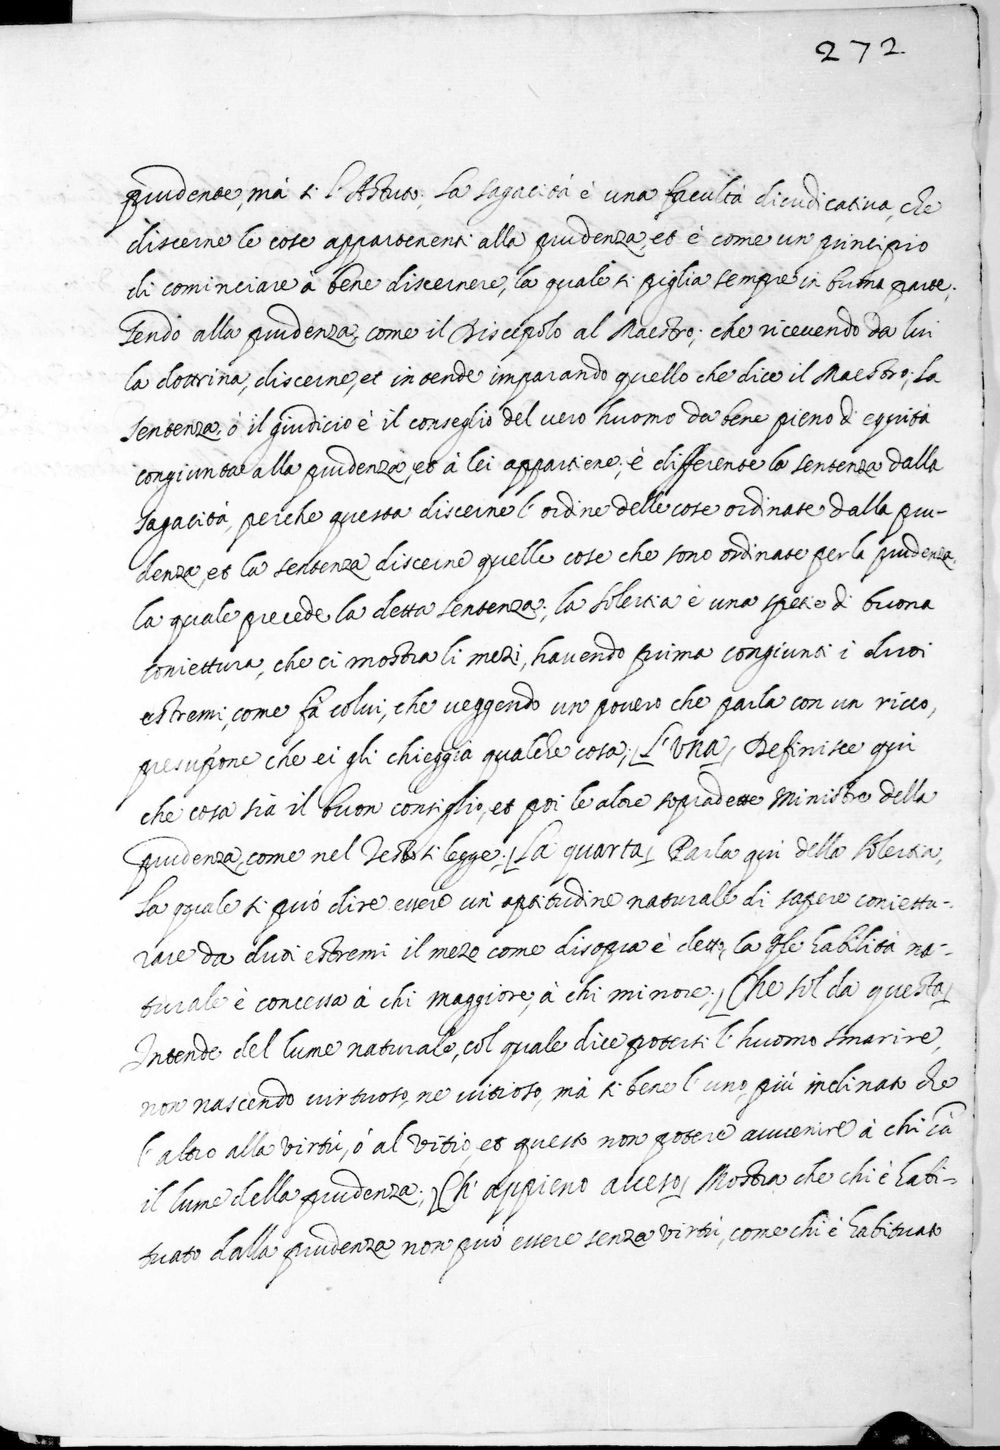 272
prudente, mà si l'Astuto; La sagacità è una facultà diiudicativa, che
discerne le cose appartenenti alla prudenza, et è come un principio
di cominciare à bene discernere, la quale si piglia sempre in buona parte;
sendo alla prudenza, come il Discepolo al Maestro; che ricevendo da lui
la dottrina, discerne, et intende imparando quello che dice il Maestro; La
sentenza, ò il giudicio è il conseglio del vero huomo da bene pieno di equità
congiuntae alla prudenza, et à lei appartiene; è differente la sentenza dalla
sagacità, perche questa discerne l'ordine delle cose ordinate dalla pru-
denza, et la sentenza discerne quelle cose che sono ordinate per la prudenza,
la quale precede la detta sentenza; la solertia è una spetie di buona
coniettura, che ci mostra li mezi, havendo prima congiunti i duoi
estremi, come fà colui, che veggendo un povero che parla con un ricco,
presupone che ei gli chieggia qualche cosa; [L'una] Definisce qui
che cosa sia il buon consiglio, et poi le altre sopradette Ministre della
prudenza, come nel Testo si legge; [La quarta] Parla qui della solertia,
La quale si può dire essere un'aptitudine naturale di sapere coniettu-
rare da duoi estremi il mezo come disopra è detto, la qle habilità na-
turale è concessa à chi maggiore, à chi minore; [Che sol da questa]
Intende del lume naturale, col quale dice potersi l'huomo smarire,
non nascendo virtuoso, ne vitioso, mà si bene l'uno, più inclinato che
l'altro alla virtù, ò al vitio, et questo non potere avvenire à chi hà
il lume della prudenza; [Ch'appieno acceso] Mostra che chi è habi-
tuato dalla prudenza non può essere senza virtù, come chi è habituato